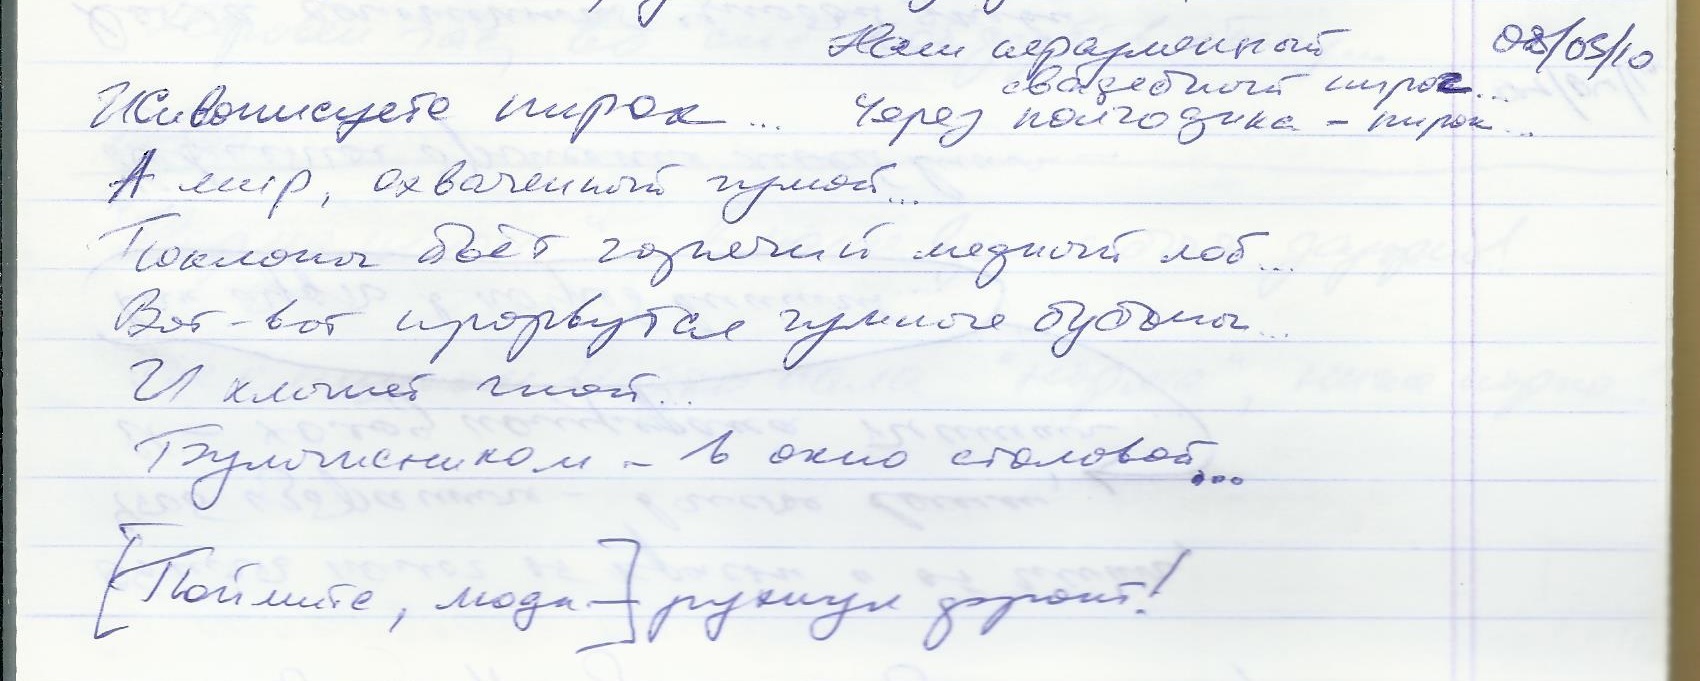 Наш неразменный 08/05/10
свадебный пирог...
Живописуете пирог ... Через полгодика – пирог...
А мир, охваченный чумой...
Поклоны бьёт горячий медный лоб...
Вот-вот прорвутся чумные бубоны...
И хлынет гной...
Булыжником – в окно столовой...
[Поймите, люди –] рухнул фронт!